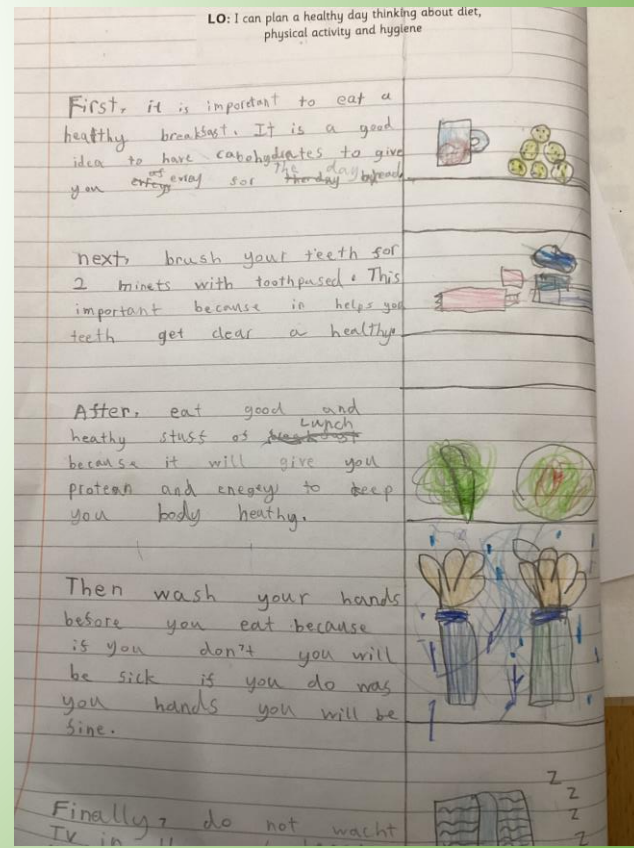 LO: I can plan a healthy day thinking about diet,
physical activity and hygiene
First, it is imporetant to eat a
heatthy breakfast. It is a good
idea to have cabohydrates to give
you eney for the day
next, brush your teeth for
2 minets with toothpased. This
important because in helps you
teeth get clear a healthy.
After, eat good and
heathy stuff of Lunch
because it will give you
protean and enegey to keep
you body heathy.
Then wash your hands
before you eat because
if you don't you will
be sick if you do was
you hands you will be
fine.
Finally, do not wacht
TV in
z
z
z
z